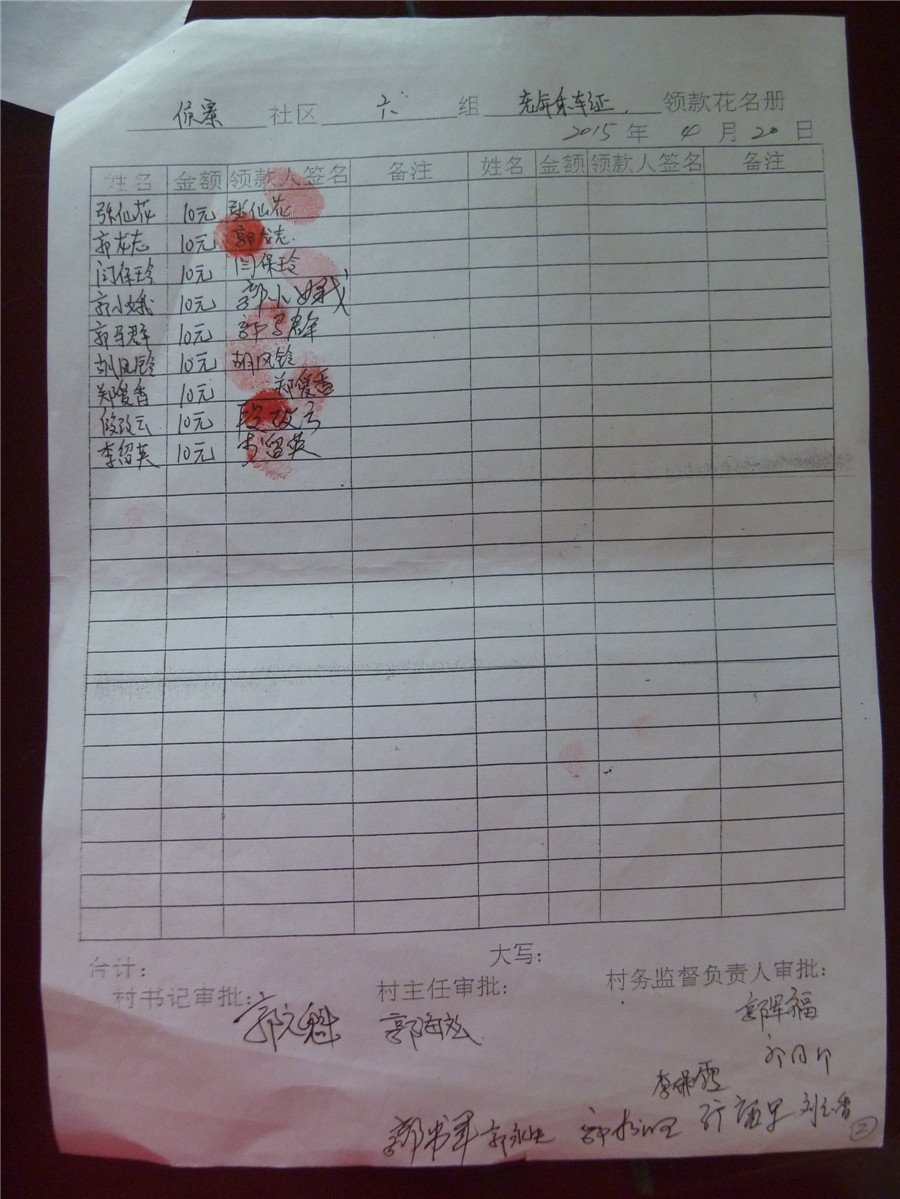 侯寨社区 六 组 老年乘车证 领款花名册
2015年4月20日
姓名 金额 领款人签名 备注 姓名 金额 领款人签名 备注
张仙花 10元 张仙花
郭友志 10元 郭友志
闫保玲 10元 闫保玲
郭小娥 10元 郭小娥
郭马群 10元 郭马群
胡风铃 10元 胡风铃
郑俊香 10元 郑俊香
段改云 10元 段改云
李留英 10元 李留英
合计： 大写：
村书记审批： 村主任审批： 村务监督负责人审批：
郭文魁 郭海 郭军福
李保
郭书军 郭永 刘 香
②